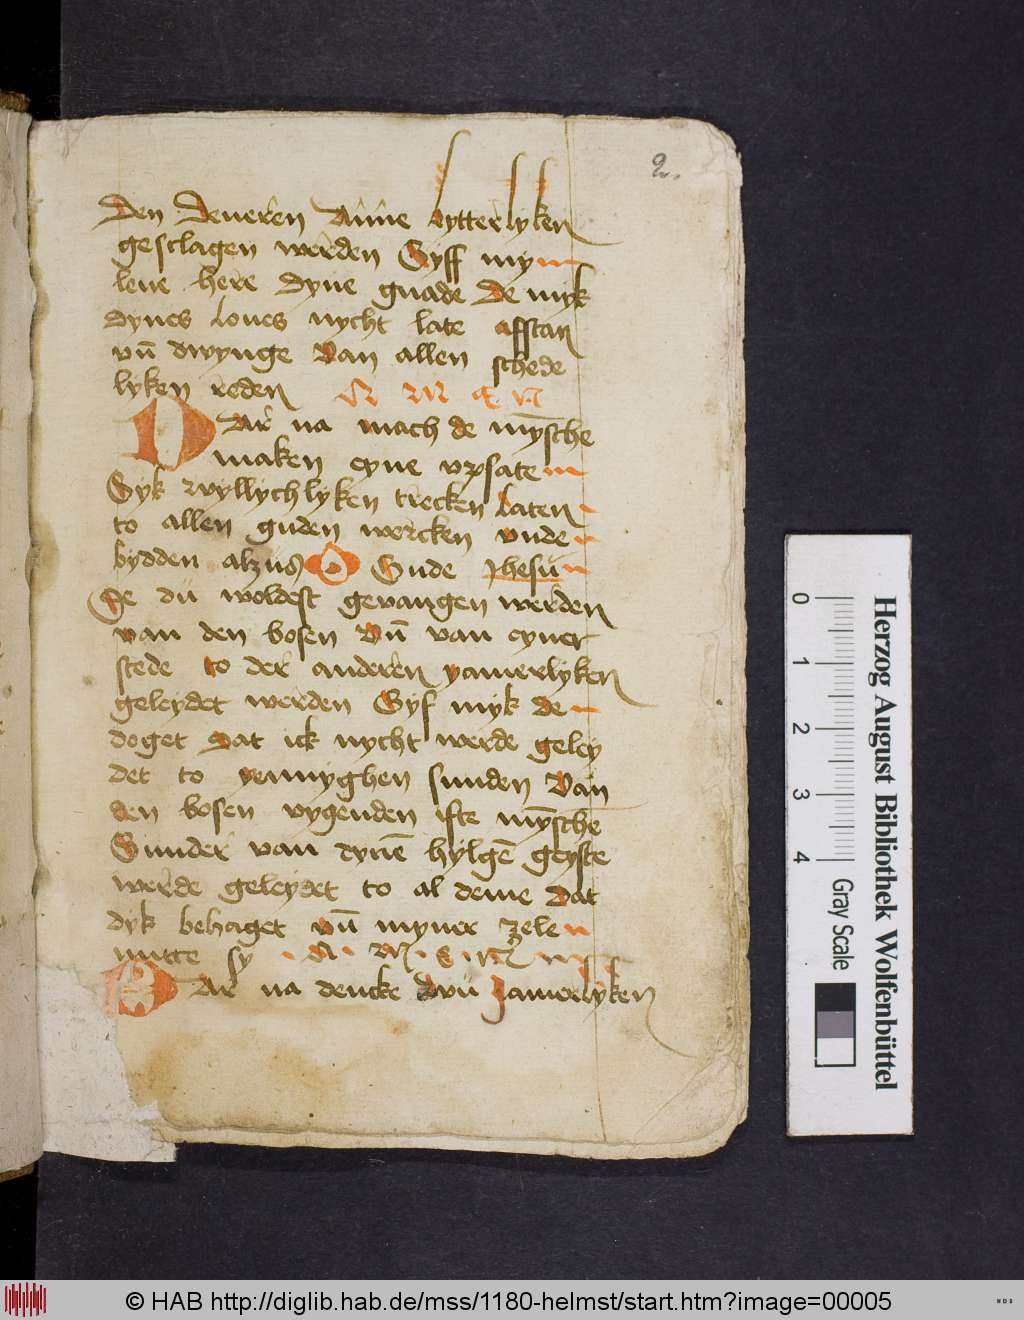 2.
den deneren Anne bytterlyken
gesclagen werden Gyff my
leue here dyne gnade De myk
dynes loues nycht late affstan
vn̄ dwynge van allen schede
lyken reden
DAr na mach de mȳsche
maken eyne vpsate
Syk wyllychlyken trecken laten
to allen guden wercken vnde
bydden alzus O Gude Jhesu
De du woldest gevangen werden
van den bosen vn̄ van eyner
stede to der anderen yamerlyken
geleydet werden Gyf myk de
doget dat ick nycht werde geley
det to yennyghen sunden van
den bosen vygenden ifte mȳsche
Sunder van dynē hylgē geyste
werde geleydet to al deme dat
dyk behaget vn̄ myner zele
nutte sy
DAr na dencke wu Jamerlyken
0 1 2 3 4
Herzog August Bibliothek Wolfenbüttel
Gray Scale
© HAB http://diglib.hab.de/mss/1180-helmst/start.htm?image=00005